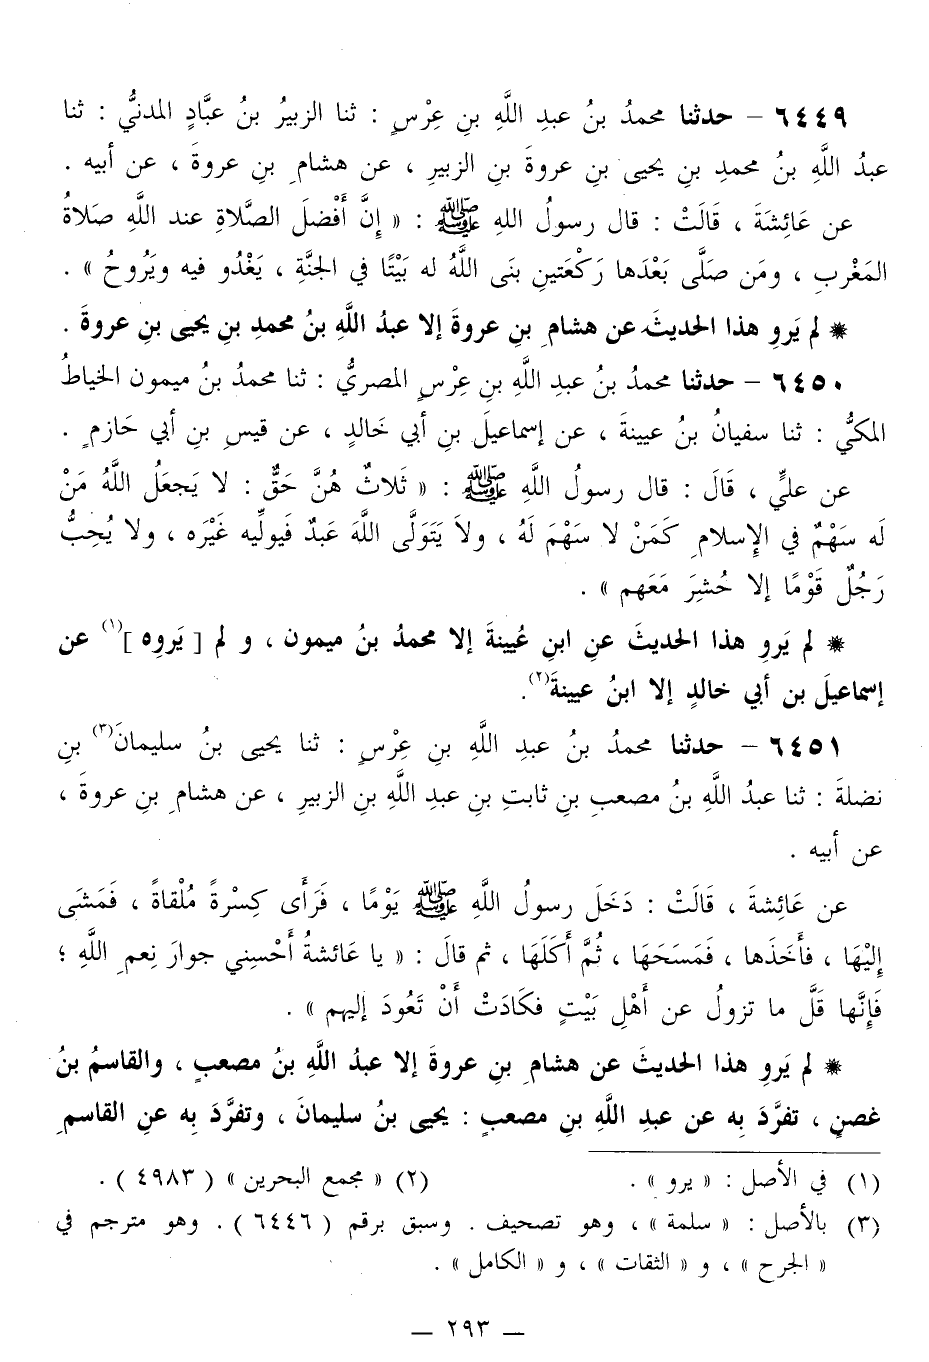 ٦٤٤٩ – حدثنا محمدُ بنُ عبدِ اللَّهِ بنِ عِرْسٍ : ثنا الزبيرُ بنُ عبَّادٍ المدنيُّ : ثنا
عبدُ اللَّهِ بنُ محمدِ بنِ يحيى بنِ عروةَ بنِ الزبيرِ ، عن هشامِ بنِ عروةَ ، عن أبيه .
عن عَائِشَةَ ، قَالَتْ : قال رسولُ اللهِ ﷺ : « إنَّ أَفْضَلَ الصَّلاةِ عند اللَّهِ صَلاةُ
المَغْربِ ، ومَن صَلَّى بَعْدَها رَكْعَتينِ بنَى اللَّهُ له بَيْتًا في الجنَّةِ ، يَغْدُو فيه ويَرُوحُ » .
* لم يَروِ هذا الحديثَ عن هشامِ بنِ عروةَ إلا عبدُ اللَّهِ بنُ محمدِ بنِ يحيى بنِ عروةَ .
٦٤٥٠ – حدثنا محمدُ بنُ عبدِ اللَّهِ بنِ عِرْسٍ المصريُّ : ثنا محمدُ بنُ ميمون الخياطُ
المكيُّ : ثنا سفيانُ بنُ عيينةَ ، عن إسماعيلَ بنِ أبي خَالدٍ ، عن قيسِ بنِ أبي حَازمٍ .
عن عليٍّ ، قَالَ : قال رسولُ اللَّهِ ﷺ : « ثَلاثٌ هُنَّ حَقٌّ : لا يَجعَلُ اللَّهُ مَنْ
لَه سَهْمٌ في الإسلامِ كَمَنْ لا سَهْمَ لَهُ ، ولاَ يَتَوَلَّى اللهَ عَبدٌ فَيولِّيه غَيْرَه ، ولا يُحِبُّ
رَجُلٌ قَوْمًا إلا حُشِرَ مَعَهم » .
* لم يَروِ هذا الحديثَ عنِ ابنِ عُيينةَ إلا محمدُ بنُ ميمون ، و لم [ يَروه ](١) عن
إسماعيلَ بن أبي خالدٍ إلا ابنُ عيينةَ(٢).
٦٤٥١ – حدثنا محمدُ بنُ عبدِ اللَّهِ بنِ عِرْسٍ : ثنا يحيى بنُ سليمانَ(٣) بنِ
نضلةَ : ثنا عبدُ اللَّهِ بنُ مصعبِ بنِ ثابتِ بنِ عبدِ اللَّهِ بنِ الزبيرِ ، عن هشامِ بنِ عروةَ ،
عن أبيه .
عن عَائِشةَ ، قَالَتْ : دَخَلَ رسولُ اللَّهِ ﷺ يَوْمًا ، فَرَأى كِسْرةً مُلْقاةً ، فَمَشَى
إِليْهَا ، فأَخَذَها ، فَمَسَحَهَا ، ثُمَّ أَكَلَهَا ، ثم قالَ : « يا عَائشةُ أَحْسِني جوارَ نِعمِ اللَّهِ ؛
فَإِنَّها قَلَّ ما تزولُ عن أَهْلِ بَيْتٍ فكَادَتْ أَنْ تَعُودَ إليهم » .
* لم يَروِ هذا الحديثَ عن هشامِ بنِ عروةَ إلا عبدُ اللَّهِ بنُ مصعبٍ ، والقاسمُ بنُ
غصنٍ ، تفرَّدَ بِه عن عبدِ اللَّهِ بنِ مصعبٍ : يحيى بنُ سليمانَ ، وتفرَّدَ بِه عنِ القاسمِ
(١) في الأصل : « يرو » .
(٢) « مجمع البحرين » ( ٤٩٨٣ ) .
(٣) بالأصل : « سلمة » ، وهو تصحيف . وسبق برقم ( ٦٤٤٦ ) . وهو مترجم في
« الجرح » ، و « الثقات » ، و « الكامل » .
– ٢٩٣ –